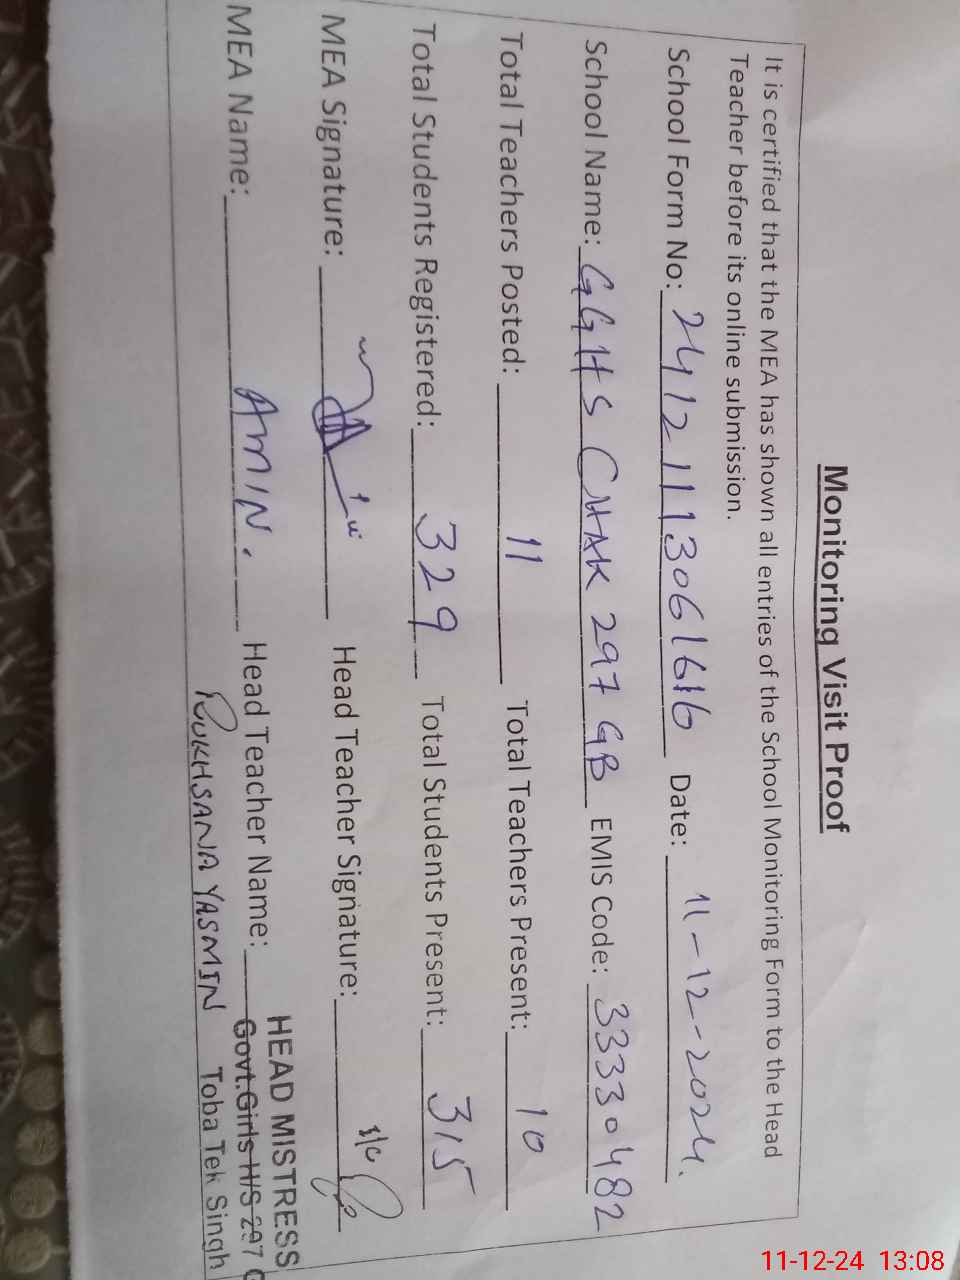 Monitoring Visit Proof
It is certified that the MEA has shown all entries of the School Monitoring Form to the Head
Teacher before its online submission.
School Form No: 2412111306 Date: 11-12-2024.
School Name: GGHS CHAK 297 GB EMIS Code: 33330482
Total Teachers Posted: 11 Total Teachers Present: 10
Total Students Registered: 329 Total Students Present: 315
MEA Signature: Head Teacher Signature:
MEA Name: AMIN. Head Teacher Name:
RUKHSANA YASMIN
HEAD MISTRESS
Govt.Girls H/S 297 G
Toba Tek Singh
11-12-24 13:08